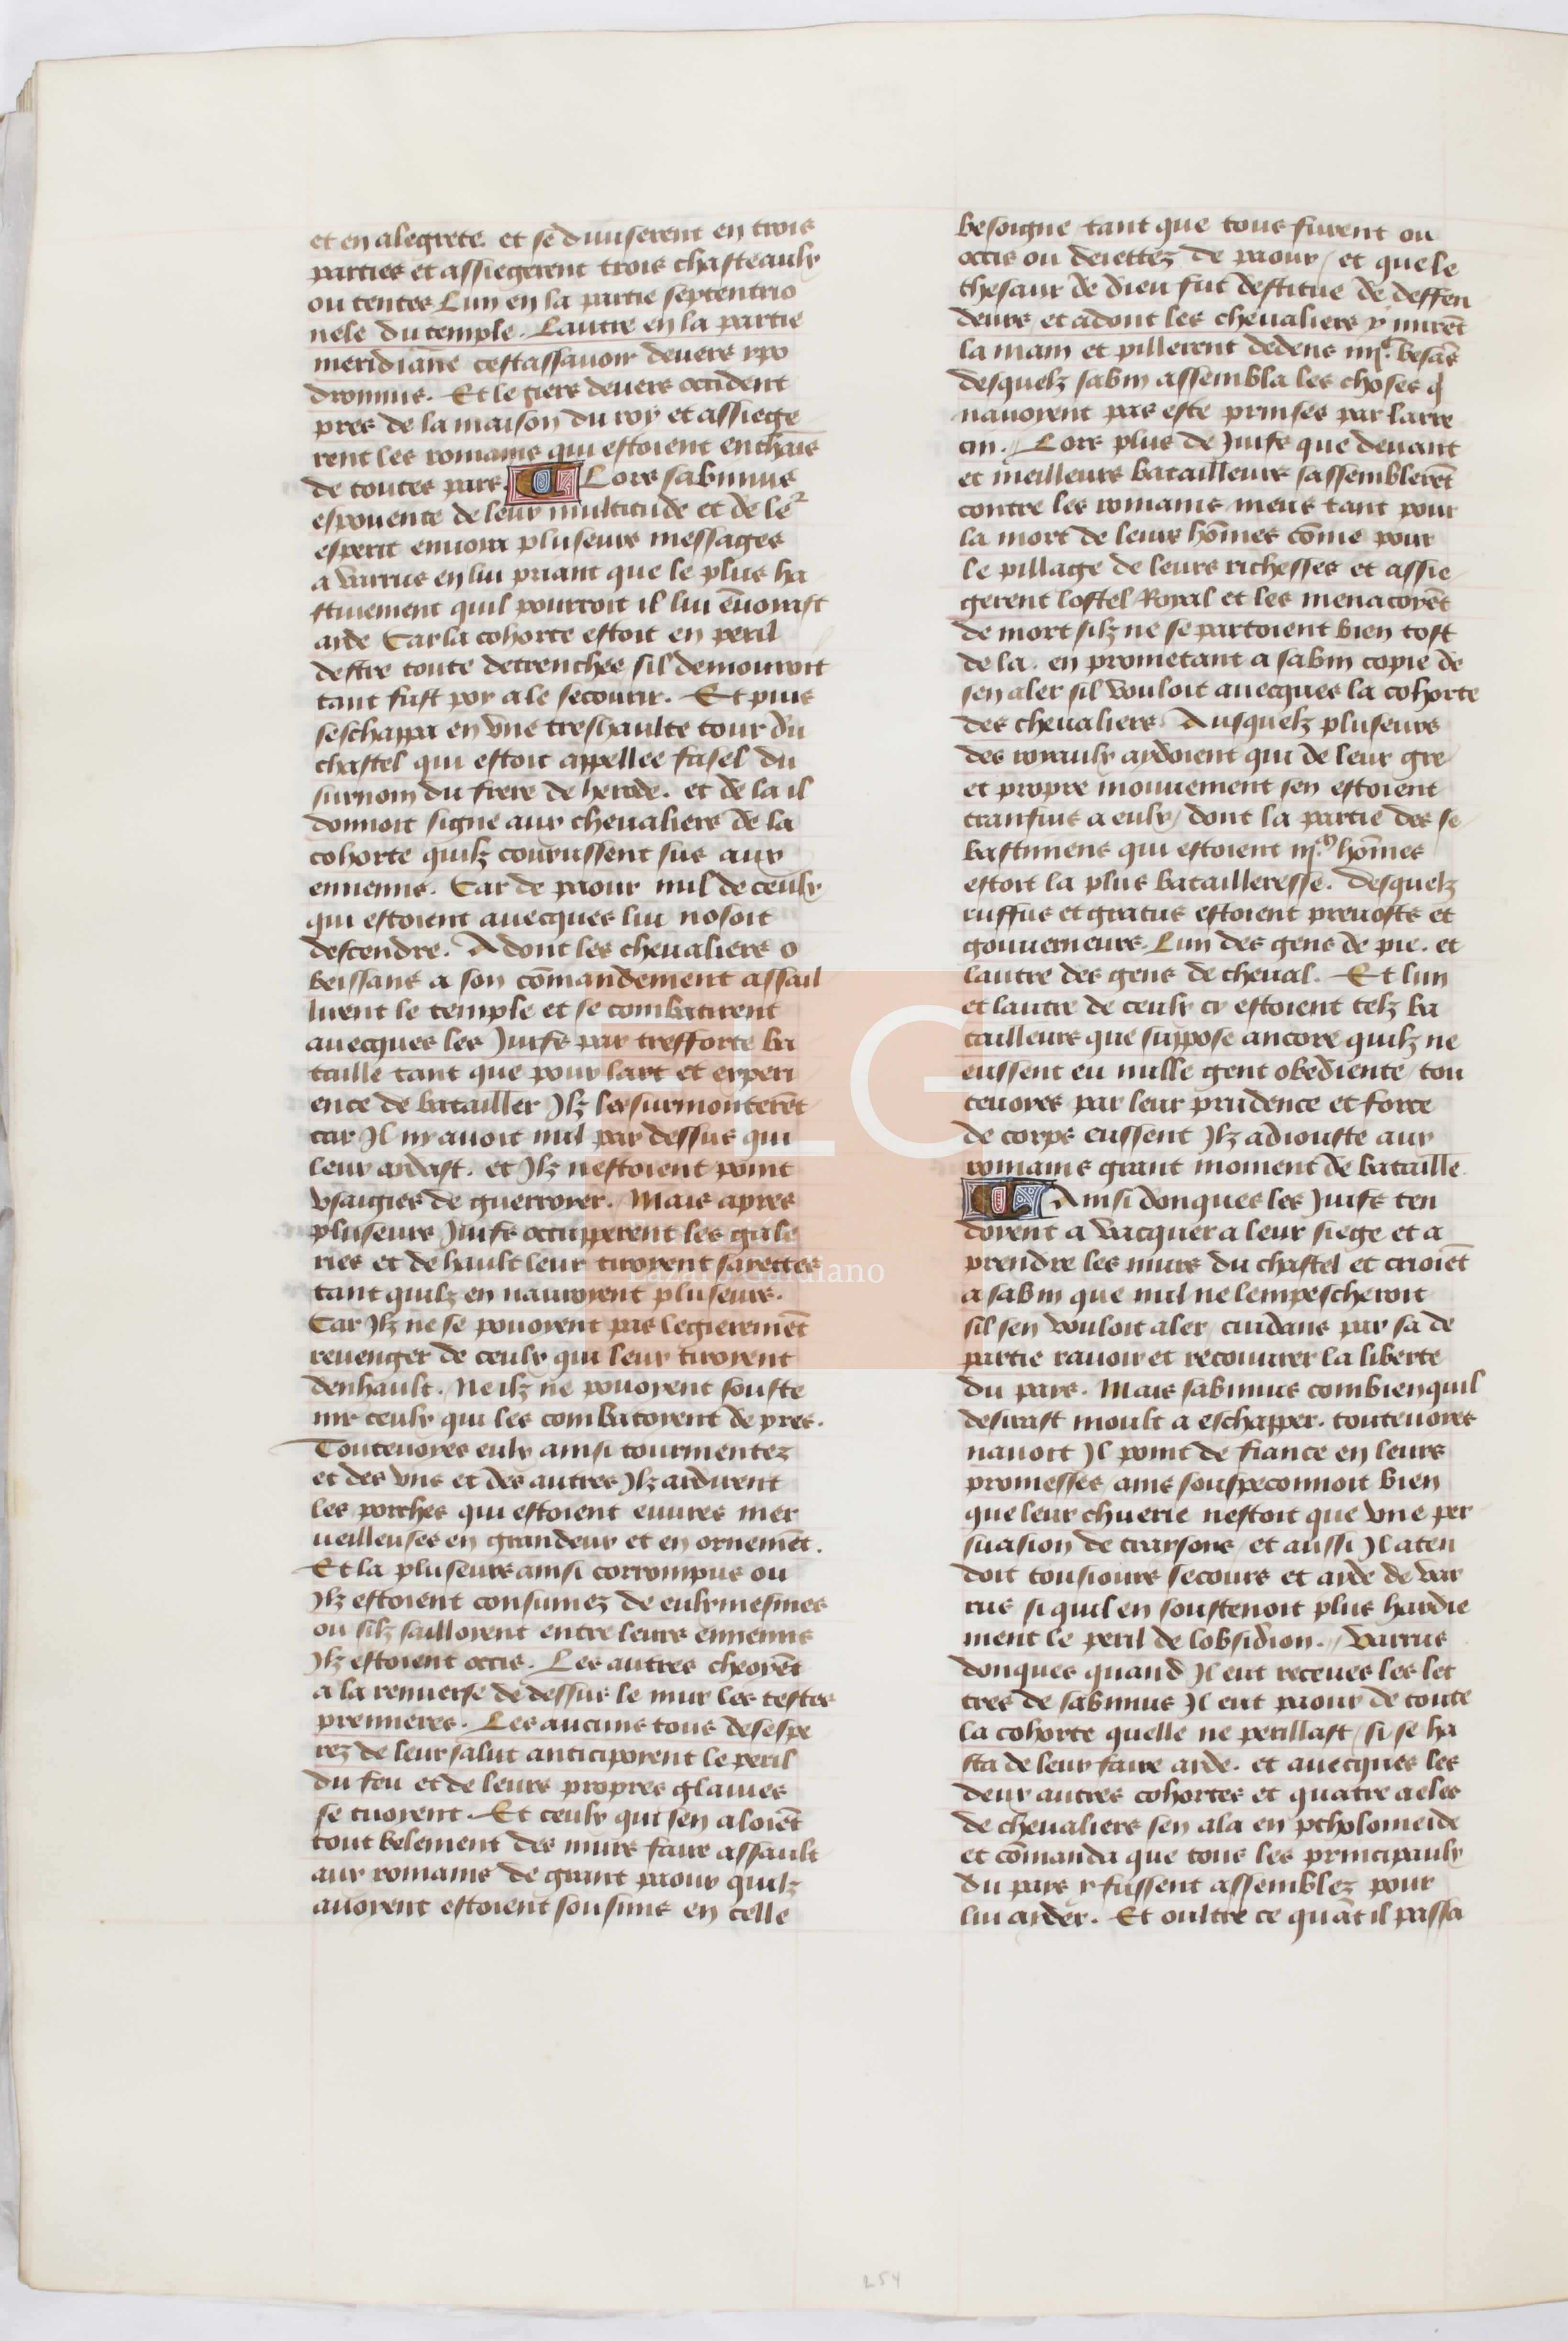 et en alegrete. et se diuiserent en trois
parties et assiegerent trois chasteaulx
ou tentes Lun en la partie septentrio
nele du temple. Lautre en la partie
meridiane cestassauoir deuers ypo
dromus. Et le tiers deuers occident
pres de la maison du roy et assiege
rent les romains qui estoient enclais
de toutes pars. Lors sabinus
espouente de leur multitude et de le͛
esperit enuoia pluseurs messages
a varrus en lui priant que le plus ha
stiuement quil pourroit il lui ēuoiast
aide Car la cohorte estoit en peril
destre toute detrenchee sil demouroit
tant fust poy a le secourir. Et puis
seschappa en vne treshaulte tour du
chastel qui estoit appellee fasel du
surnom du frere de herode. et de la il
donnoit signe aux cheualiers de la
cohorte quilz courussent sus aux
ennemis. Car de paour nul de ceulx
qui estoient auecques lui nosoit
descendre. Adont les cheualiers o
beissans a son cōmandement assail
lirent le temple et se combatirent
auecques les Juifs par tresforte ba
taille tant que pour lart et experi
ence de batailler Jlz les surmonterēt
car Jl ny auoit nul par dessus qui
leur aidast. et Jlz nestoient point
vsaigies de guerroyer. Mais apres
pluseurs Juifs occupperent les gale
ries et de hault leur tiroyent saiettes
tant quilz en nauroyent pluseurs.
Car Jlz ne se pouoyent pas legieremēt
reuenger de ceulx qui leur tiroyent
denhault. Ne ilz ne pouoyent souste
nir ceulx qui les combatoyent de pres.
Touteuoyes eulx ainsi tourmentez
et des vns et des autres Jlz ardirent
les porches qui estoient euures mer
ueilleuses en grandeur et en ornemēt.
Et la pluseurs ainsi corrompus ou
Jlz estoient consumez de eulxmesmes
ou silz sailloyent entre leurs ennemis
Jlz estoient occis. Les autres cheoyēt
a la renuerse de dessus le mur les testes
premieres. Les aucuns tous desespe
rez de leur salut anticipoyent le peril
du feu et de leurs propres glaiues
se tuoyent. Et ceulx qui sen aloiēt
tout belement des murs faire assault
aux romains de grant paour quilz
auoyent estoient sousprins en celle
besoigne tant que tous furent ou
occis ou deiettez de paour / et que le
thesaur de dieu fut destitue de deffen
deurs / et adont les cheualiers y mirēt
la main et pillerent dedens iiijᶜ besās
desquelz sabin assembla les choses q̄
nauoyent pas este prinses par larre
cin. // Lors plus de Juifs que deuant
et meilleurs batailleurs sassemblerēt
contre les romains meus tant pour
la mort de leurs hōmes cōme pour
le pillage de leurs richesses et assie
gerent lostel Royal et les menacoyēt
de mort silz ne se partoient bien tost
de la. en prometant a sabin copie de
sen aler sil vouloit auecques la cohorte
des cheualiers. Ausquelz pluseurs
des royaulx aydoient qui de leur gre
et propre mouuement sen estoient
transfuis a eulx / dont la partie des se
bastimens qui estoient iijᵐ hōmes
estoit la plus batailleresse. desquelz
ruffus et gratus estoient preuosts et
gouuerneurs. Lun des gens de pie. et
lautre des gens de cheual. Et lun
et lautre de ceulx cy estoient telz ba
tailleurs que suppose ancore quilz ne
eussent eu nulle gent obediente / tou
teuoyes par leur prudence et force
de corps eussent Jlz adiouste aux
romains grant moment de bataille
Ainsi donques les Juifs ten
doyent a vacquer a leur siege et a
prendre les murs du chastel et crioiēt
a sabin que nul ne lempescheroit
sil sen vouloit aler / cuidans par sa de
partie rauoir et recouurer la liberte
du pays. Mais sabinus combien quil
desirast moult a eschapper. touteuoyes
nauoit Jl point de fiance en leurs
promesses / ains souspeconnoit bien
que leur chuerie nestoit que vne per
suasion de traysons / et aussi Jl aten
doit tousiours secours et aide de var
rus si quil en soustenoit plus hardie
ment le peril de lobsidion. // Varrus
donques quand Jl eut receues les let
tres de sabinus Jl eut paour de toute
la cohorte quelle ne perillast / si se ha
sta de leur faire aide. et auecques les
deux autres cohortes et quatre aeles
de cheualiers sen ala en ptholomeide
et cōmanda que tous les principaulx
du pays y fussent assemblez pour
lui aider. Et oultre ce quāt il passa
LG
Lázaro Galdiano
254